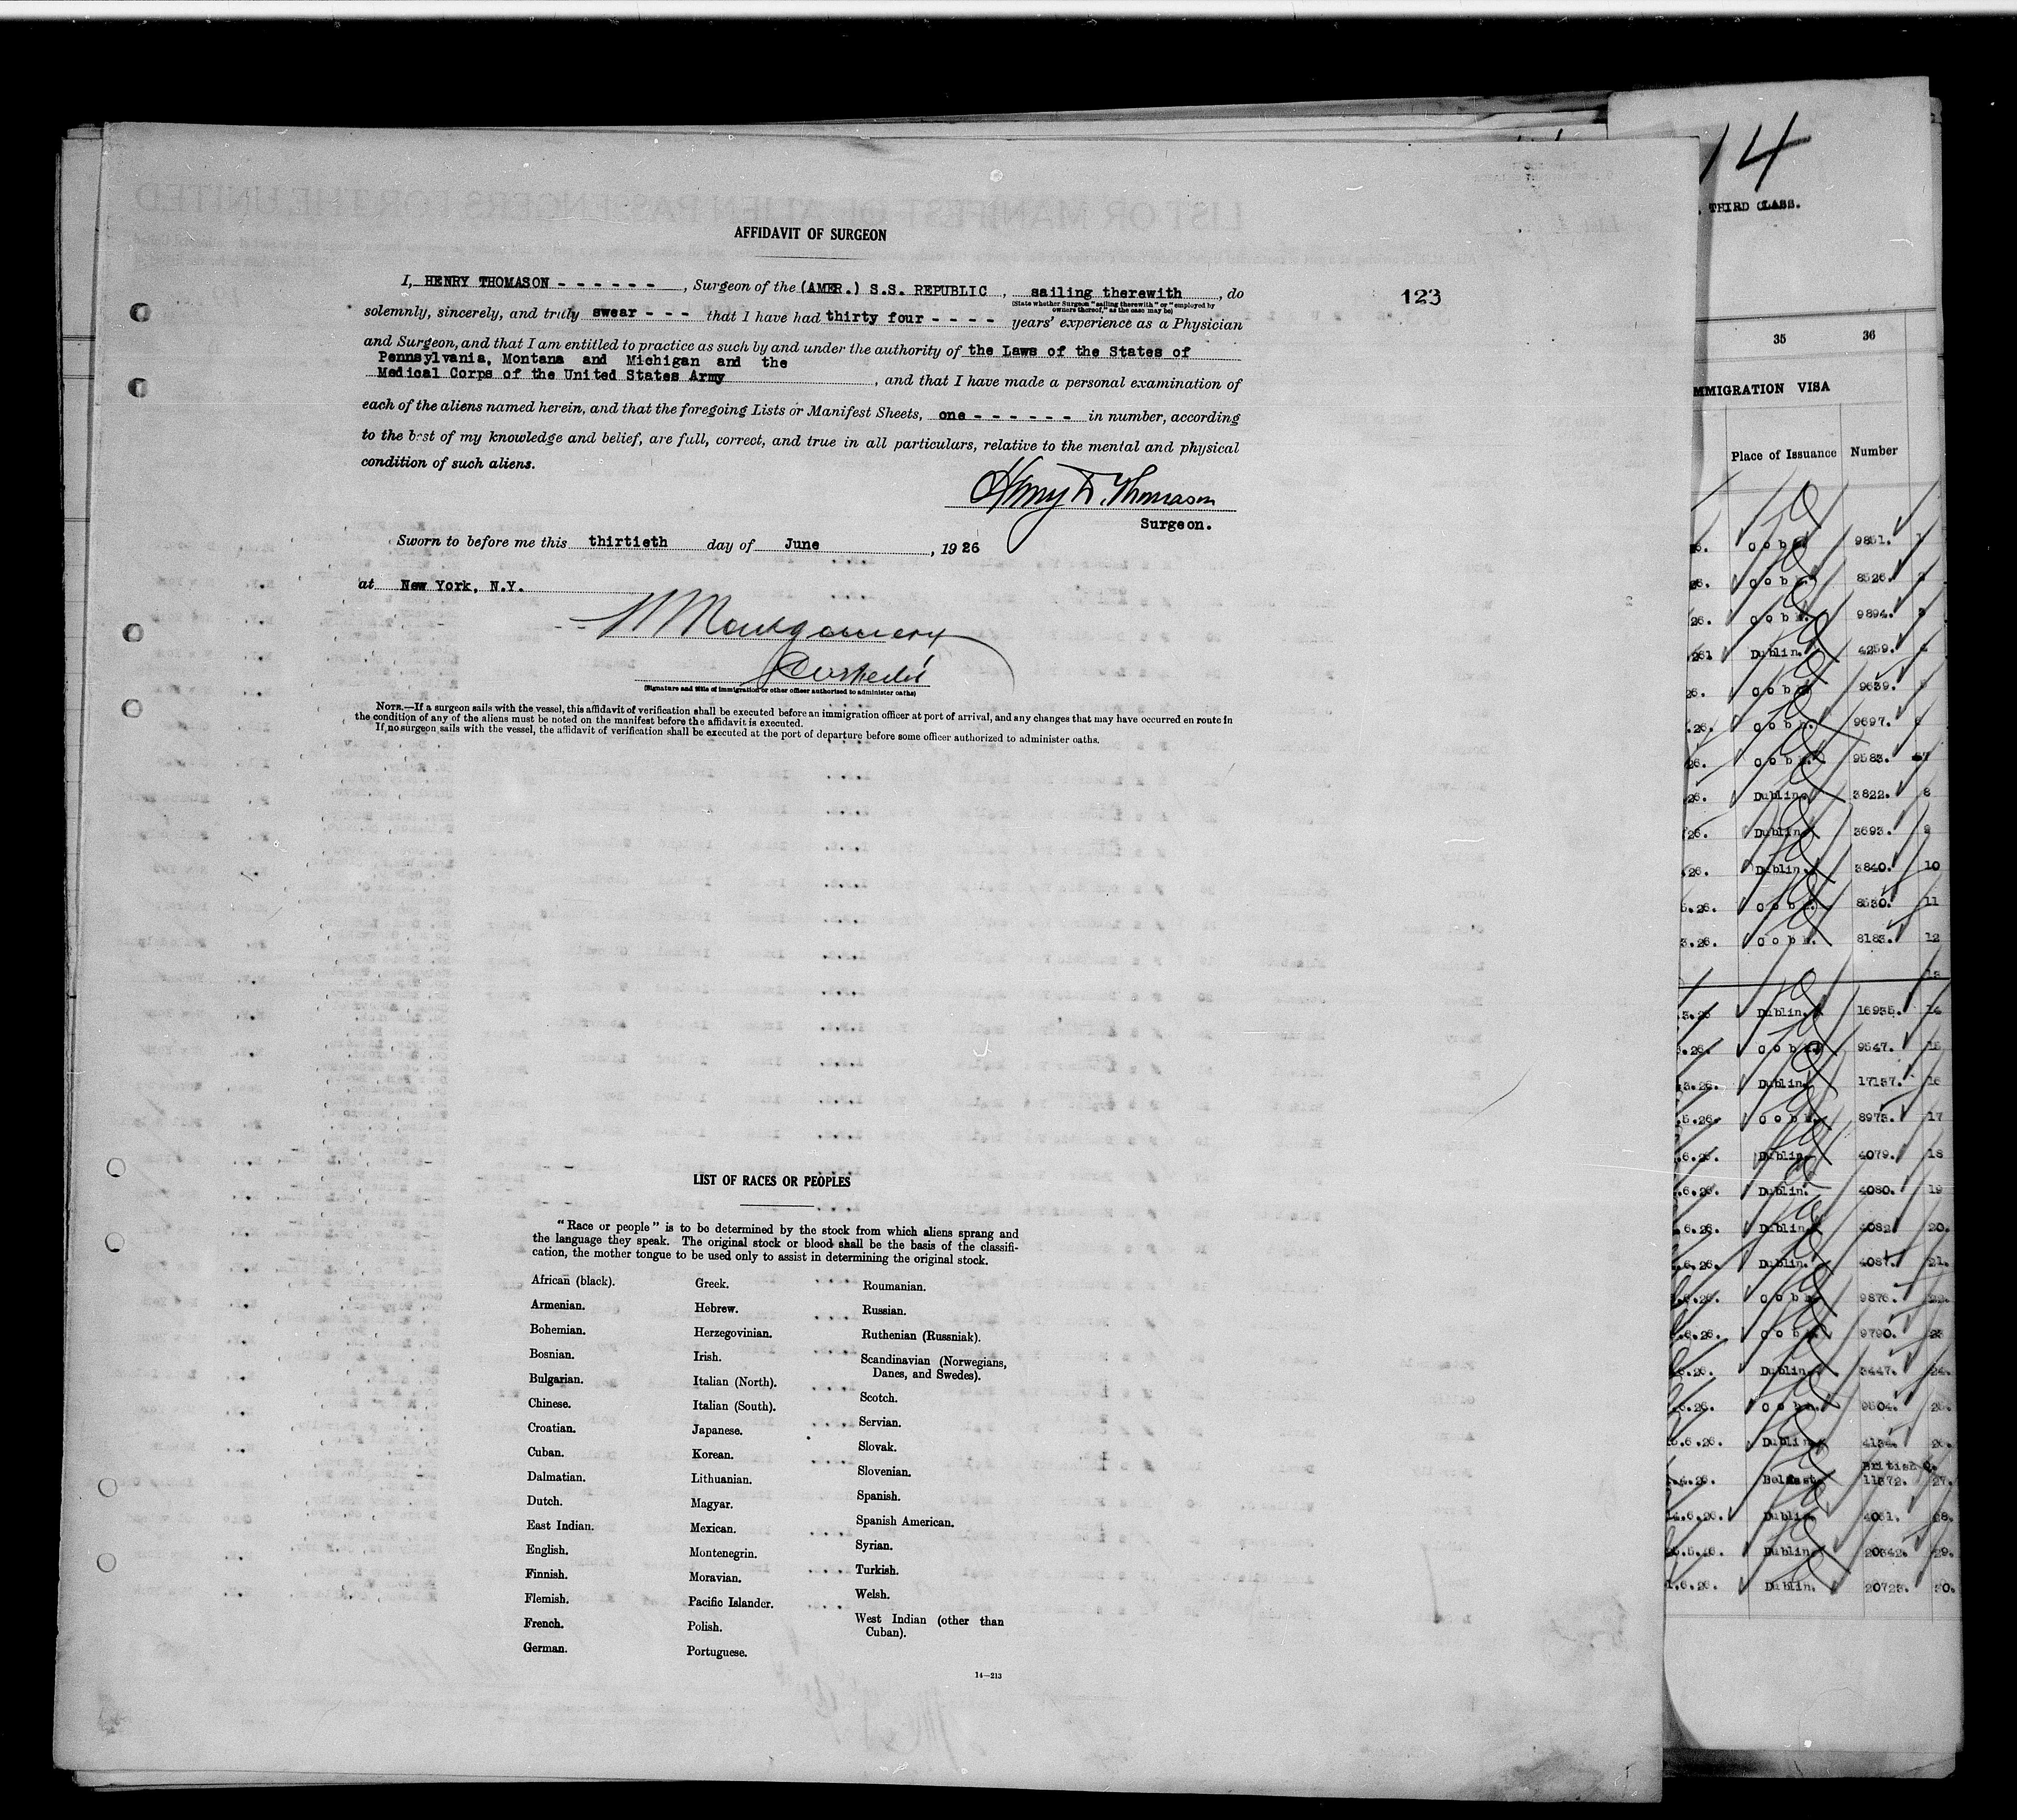 14
THIRD CLASS.
AFFIDAVIT OF SURGEON
I, HENRY THOMASON - - - - - - , Surgeon of the (AMER.) S.S. REPUBLIC , sailing therewith , do
(State whether Surgeon "sailing therewith" or "employed by
owners thereof," as the case may be)
123
solemnly, sincerely, and truly swear - - - that I have had thirty four - - - - years' experience as a Physician
and Surgeon, and that I am entitled to practice as such by and under the authority of the Laws of the States of
Pennsylvania, Montana and Michigan and the
Medical Corps of the United States Army , and that I have made a personal examination of
each of the aliens named herein, and that the foregoing Lists or Manifest Sheets, one - - - - - - in number, according
to the best of my knowledge and belief, are full, correct, and true in all particulars, relative to the mental and physical
condition of such aliens.
Henry D. Thomason
Surgeon.
Sworn to before me this thirtieth day of June , 1926
at New York, N.Y.
Montgomery
(Signature and title of immigration or other officer authorized to administer oaths)
NOTE.—If a surgeon sails with the vessel, this affidavit of verification shall be executed before an immigration officer at port of arrival, and any changes that may have occurred en route in
the condition of any of the aliens must be noted on the manifest before the affidavit is executed.
If no surgeon sails with the vessel, the affidavit of verification shall be executed at the port of departure before some officer authorized to administer oaths.
LIST OF RACES OR PEOPLES
"Race or people" is to be determined by the stock from which aliens sprang and
the language they speak. The original stock or blood shall be the basis of the classifi-
cation, the mother tongue to be used only to assist in determining the original stock.
African (black).
Armenian.
Bohemian.
Bosnian.
Bulgarian.
Chinese.
Croatian.
Cuban.
Dalmatian.
Dutch.
East Indian.
English.
Finnish.
Flemish.
French.
German.
Greek.
Hebrew.
Herzegovinian.
Irish.
Italian (North).
Italian (South).
Japanese.
Korean.
Lithuanian.
Magyar.
Mexican.
Montenegrin.
Moravian.
Pacific Islander.
Polish.
Portuguese.
Roumanian.
Russian.
Ruthenian (Russniak).
Scandinavian (Norwegians,
Danes, and Swedes).
Scotch.
Servian.
Slovak.
Slovenian.
Spanish.
Spanish American.
Syrian.
Turkish.
Welsh.
West Indian (other than
Cuban).
14—213
35 36
IMMIGRATION VISA
Place of Issuance Number
Cobh. 9851. 1
26. Cobh. 8526. 2
26. Cobh. 9894. 3
Dublin. 4259. 4
26. Cobh. 9639. 5
.26. Cobh. 9697. 6
26. Cobh. 9583. 7
26. Dublin. 3822. 8
26. Dublin. 3693. 9
26. Dublin. 3840. 10
5.26. Cobh. 8530. 11
3.26. Cobh. 8183. 12
13
.3.26 Dublin. 16935. 14
.26. Cobh. 9547. 15
.3.26. Dublin. 17137. 16
.5.26. Cobh. 8973. 17
.6.26. Dublin. 4079. 18
.6.26. Dublin. 4080. 19
6.26. Dublin. 4082. 20.
.6.26. Dublin. 4087. 21.
.6.26. Cobh. 9876. 22.
.6.26. Cobh. 9790. 23
6.26. Dublin. 3447. 24.
.6.26. Cobh. 9504. 25.
.6.26. Dublin. 4134. 26.
British
.4.26. Belfast. 11372. 27.
14.6.26. Dublin. 4051. 28.
.5.26. Dublin. 20342. 29.
1.6.26. Dublin. 20723. 30.